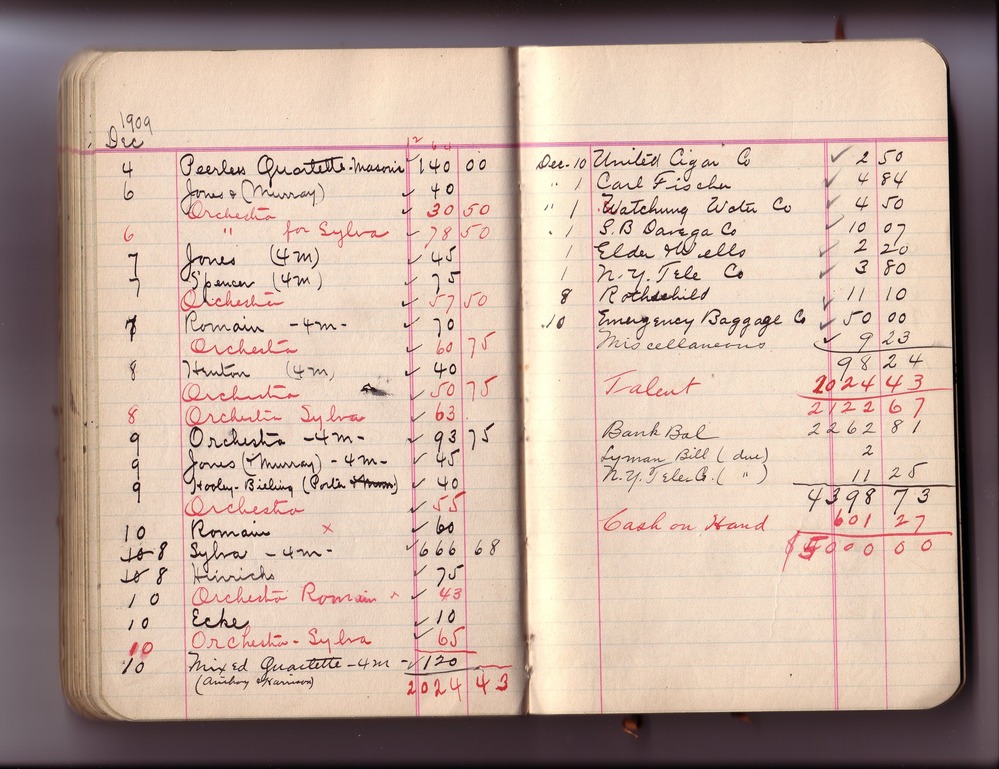 1909
Dec
4 Peerless Quartette-Masonic ✓ 140 00
6 Jones & (Murray) ✓ 40
Orchestra ✓ 30 50
6 " for Sylva ✓ 78 50
7 Jones (4m) ✓ 45
7 Spencer (4m) ✓ 75
Orchestra ✓ 57 50
7 Romain -4m- ✓ 70
Orchestra ✓ 60 75
8 Hinton (4m) ✓ 40
Orchestra ✓ 50 75
8 Orchestra Sylva ✓ 63
9 Orchestra -4m- ✓ 93 75
9 Jones (& Murray) -4m- ✓ 45
9 Hooley-Bieling (Porter ✓ 40
Orchestra ✓ 55
10 Romain x ✓ 60
10 8 Sylva -4m- ✓ 666 68
10 8 Hinrichs ✓ 75
10 Orchestra Romain x ✓ 43
10 Ecke ✓ 10
10 Orchestra-Sylva ✓ 65
10 Mixed Quartette-4m- ✓ 120
(Anthony & Harrison)
2024 43
Dec-10 United Cigar Co ✓ 2 50
" 1 Carl Fischer ✓ 4 84
" 1 Watchung Water Co ✓ 4 50
" 1 S.B Davega Co ✓ 10 07
1 Elder Wells ✓ 2 20
1 N.Y. Tele Co ✓ 3 80
8 Rothschild ✓ 11 10
10 Emergency Baggage Co ✓ 50 00
Miscellaneous ✓ 9 23
98 24
Talent 2024 43
2122 67
Bank Bal 2262 81
Lyman Bill (due) 2
N.Y. Tele Co. ( " ) 11 25
4398 73
Cash on Hand 601 27
$5000 00